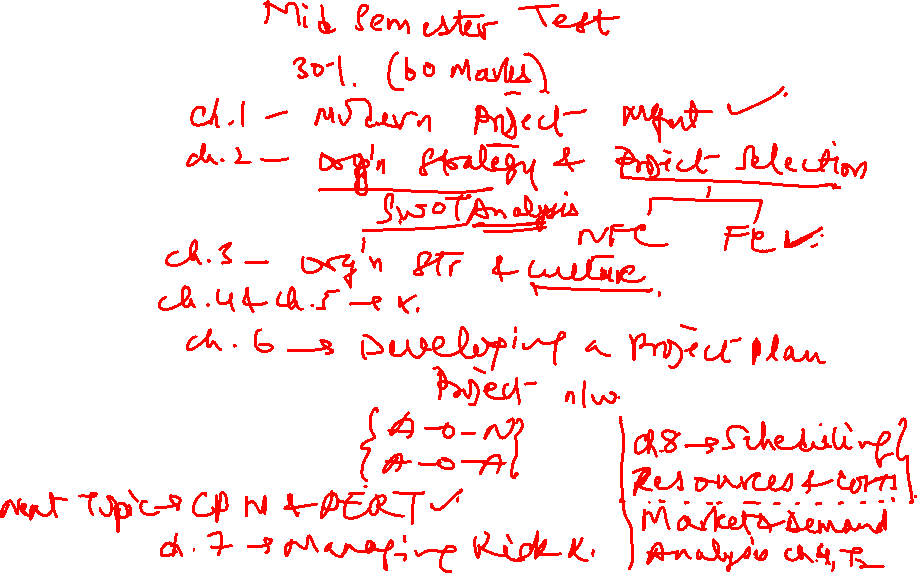 Mid Semester Test
30%. (60 Marks)
ch.1 - Modern Project Mgmt ✓
ch.2 - Org'n Strategy & Project Selection
SWOT Analysis
NFC FC ✓
ch.3 - Org'n Str & Culture
ch.4 & ch.5 → x.
ch.6 → Developing a Project Plan
Project n/w
{A-O-N}
{A-O-A}
Next Topic → CPM & PERT ✓
ch.7 → Managing Risk x.
ch.8 → Scheduling
Resources & Costs
Market & Demand
Analysis ch.4, T2